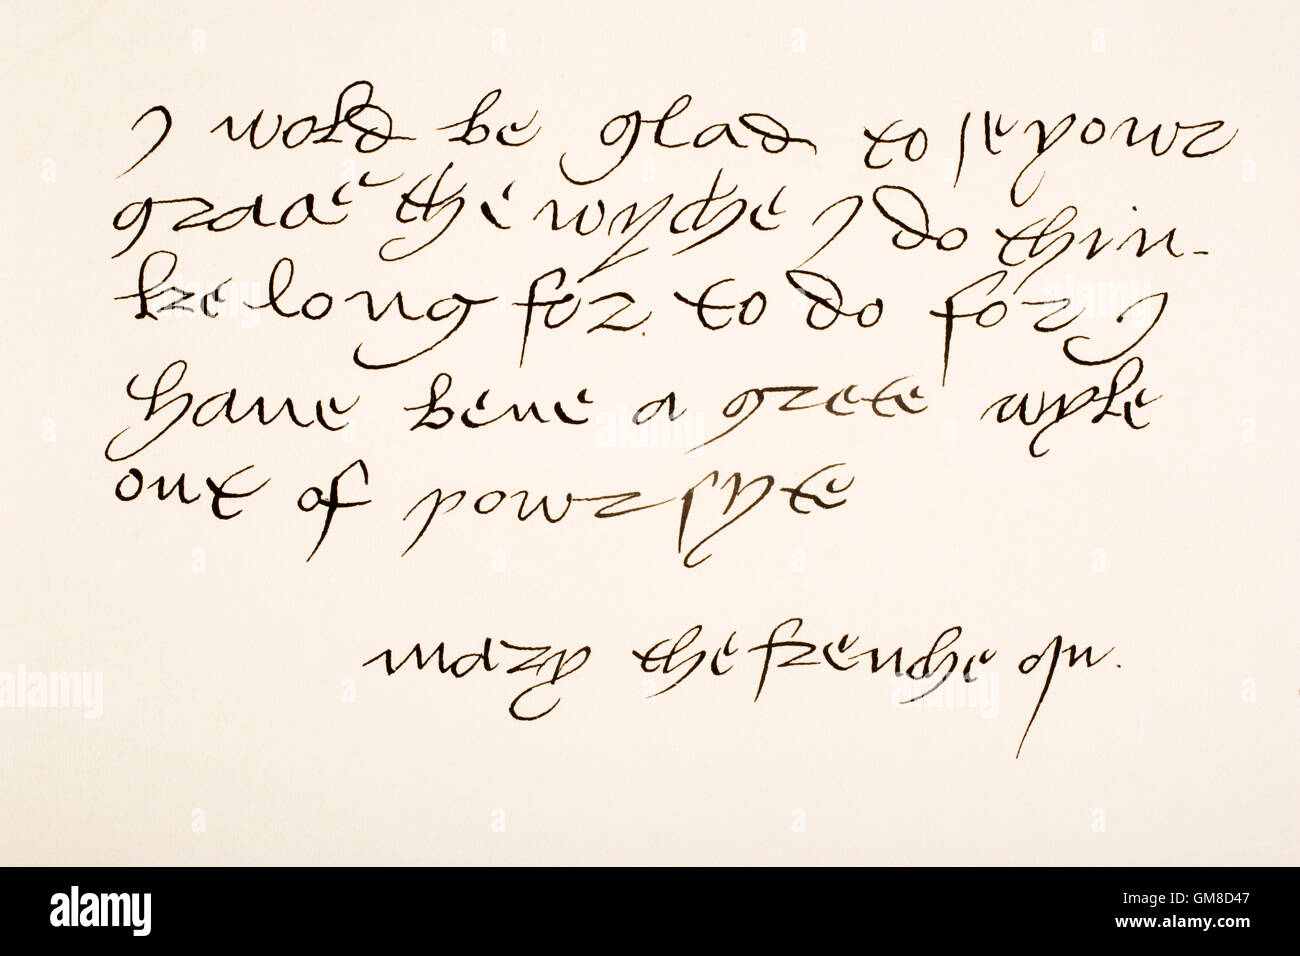 I wold be glad to se yowr
grace the wyche I do thin-
ke long for to do for I
haue bene a grete wyle
out of yowr syte
mary the frenche qn.
alamy
Image ID: GM8D47
www.alamy.com